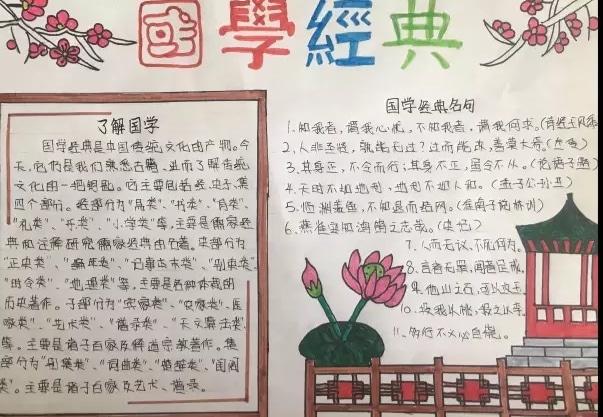 國學經典
了解国学
国学经典是中国传统文化的产物。今
天，它仍是我们熟悉古籍，进而了解传统
文化的一把钥匙。它主要包括经、史、子、集
四个部分。经部分为"易类"、"书类"、
"礼类"、"小学类"等，主要是儒家经
典和注解研究儒家经典的名著。史部分为
"正史类"、"编年类"、"记事本末类"、"别史类"、
"时令类"、"地理类"等，主要是各种体裁的
历史著作。子部分为"儒家类"、"农家类"、"医
家类"、"艺术类"、"谱录类"、"天文算法类"
等，主要是诸子百家及释道宗教著作。集
部分为"别集类"、"词曲类"、"楚辞类"、"闺阁
类"。主要是诸子百家及艺术、谱录。
国学经典名句
1.知我者，谓我心忧，不知我者，谓我何求。(诗经王风
2.人非圣贤，孰能无过？过而能改，善莫大焉。
3.其身正，不令而行；其身不正，虽令不从。(论语子路)
4.天时不如地利，地利不如人和。(孟子公孙丑)
5.临渊羡鱼，不如退而结网。(淮南子说林训)
6.燕雀安知鸿鹄之志哉。(史记)
7.人而无仪，不死何为。
8.言者无罪，闻者足戒。
9.他山之石，可以攻玉。
10.投我以桃，报之以李。
11.多行不义必自毙。